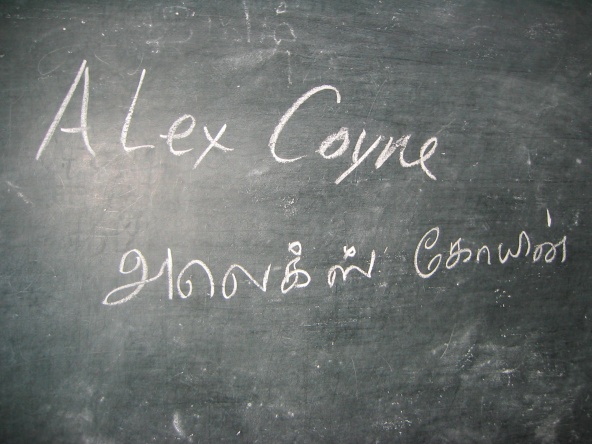 ALex Coyne
அலெக்ஸ் கோயின்